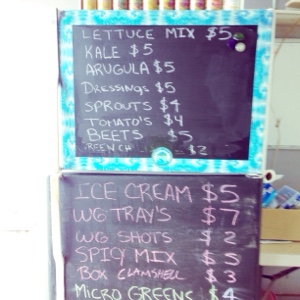 LETTUCE MIX $5
KALE $5
ARUGULA $5
DRESSINGS $5
SPROUTS $4
TOMATO'S $4
BEETS $5
$2
ICE CREAM $5
WG TRAY'S $7
WG SHOTS $2
SPICY MIX $5
BOX CLAMSHELL $3
MICRO GREENS $4